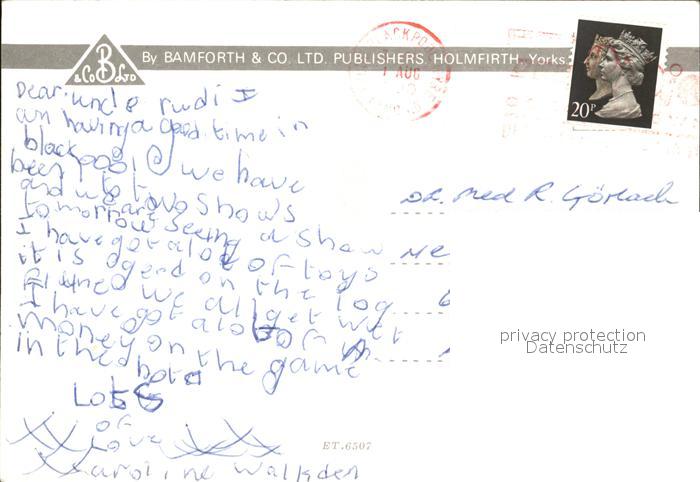 By BAMFORTH & CO. LTD. PUBLISHERS HOLMFIRTH, Yorks.
& Co B LTD
BLACKPOOL
1 AUG
20P
Dear uncle rudi I
am having a good time in
blackpool we have
been
and up to two Shows
tomorrow are
seeing a show
I have got a lot of toys
it is good on the log
flumed we all get wet
I have got a lot of
money on the game
in the hotel
Lots
of
Love
Karoline Walkden
Dr. med R. Görlach
me
privacy protection
Datenschutz
ET.6507